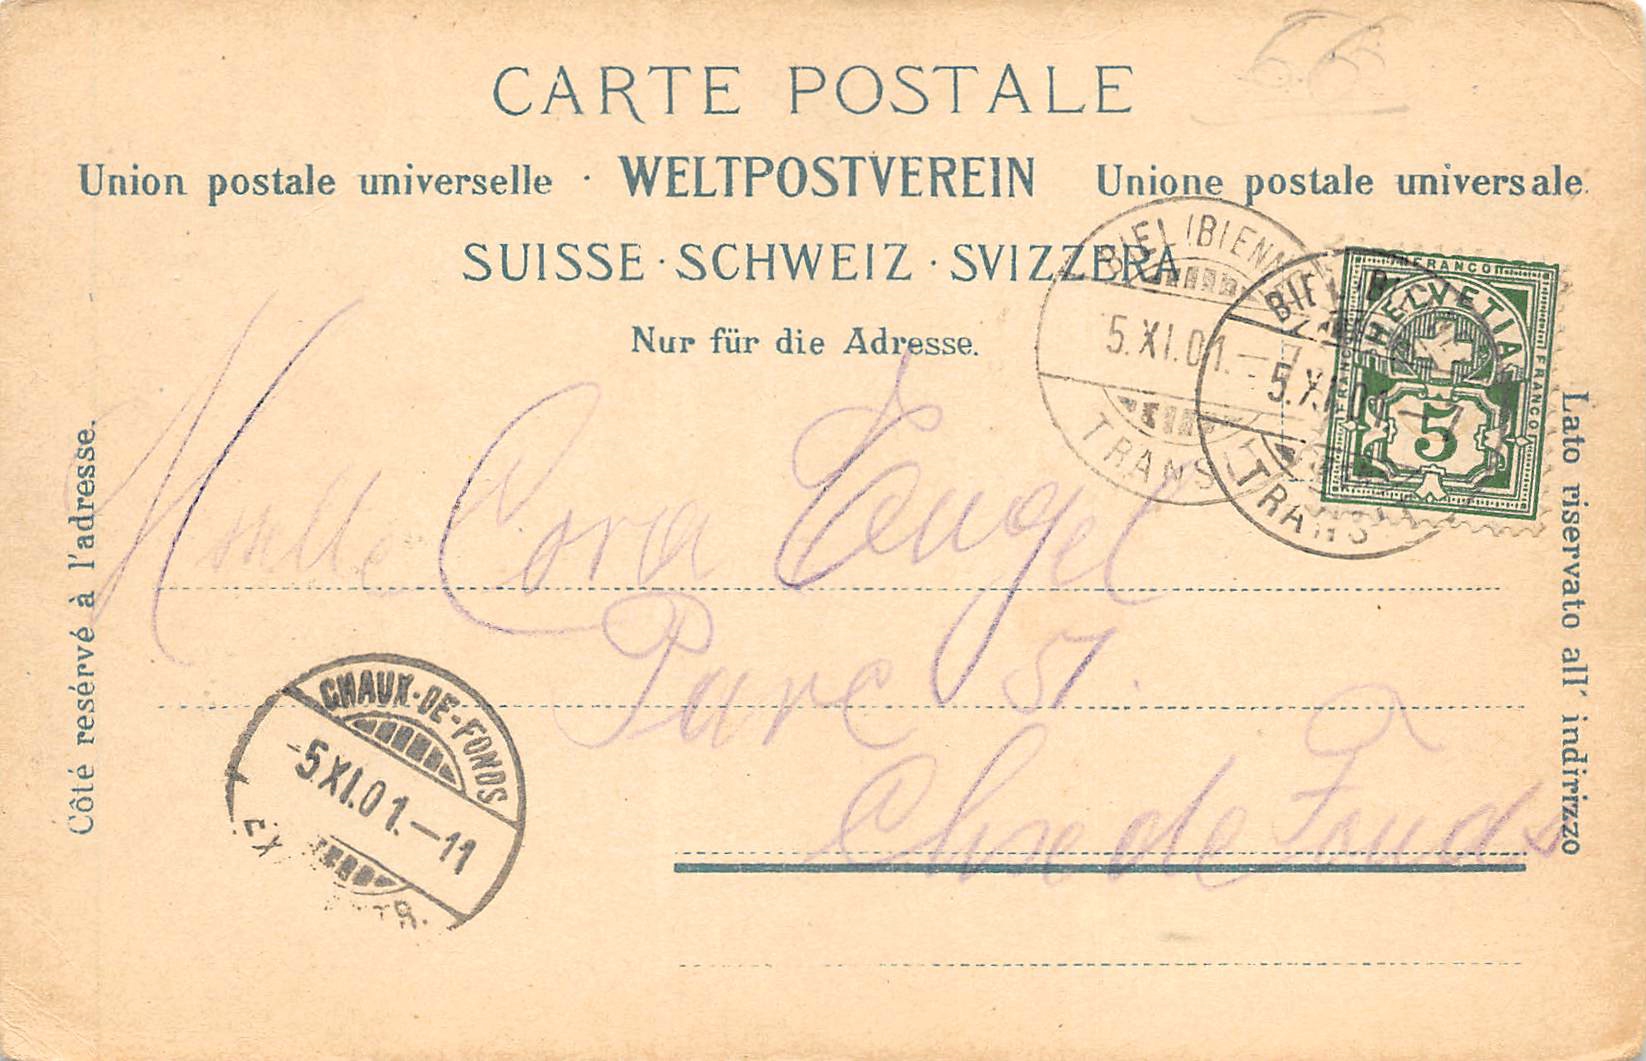 5.6
CARTE POSTALE
Union postale universelle · WELTPOSTVEREIN Unione postale universale.
SUISSE · SCHWEIZ · SVIZZERA
Nur für die Adresse.
BIEL (BIENNE)
5.XI.01.–7
TRANSIT
BIEL (BIENNE)
5.XI.01.–7
TRANSIT
FRANCO
HELVETIA
FRANCO
FRANCO
5
Côté resérvé à l'adresse.
Lato riservato all' indirizzo
Mlle Cora Engel
Parc 51.
Chx de Fonds
CHAUX-DE-FONDS
-5.XI.01.–11